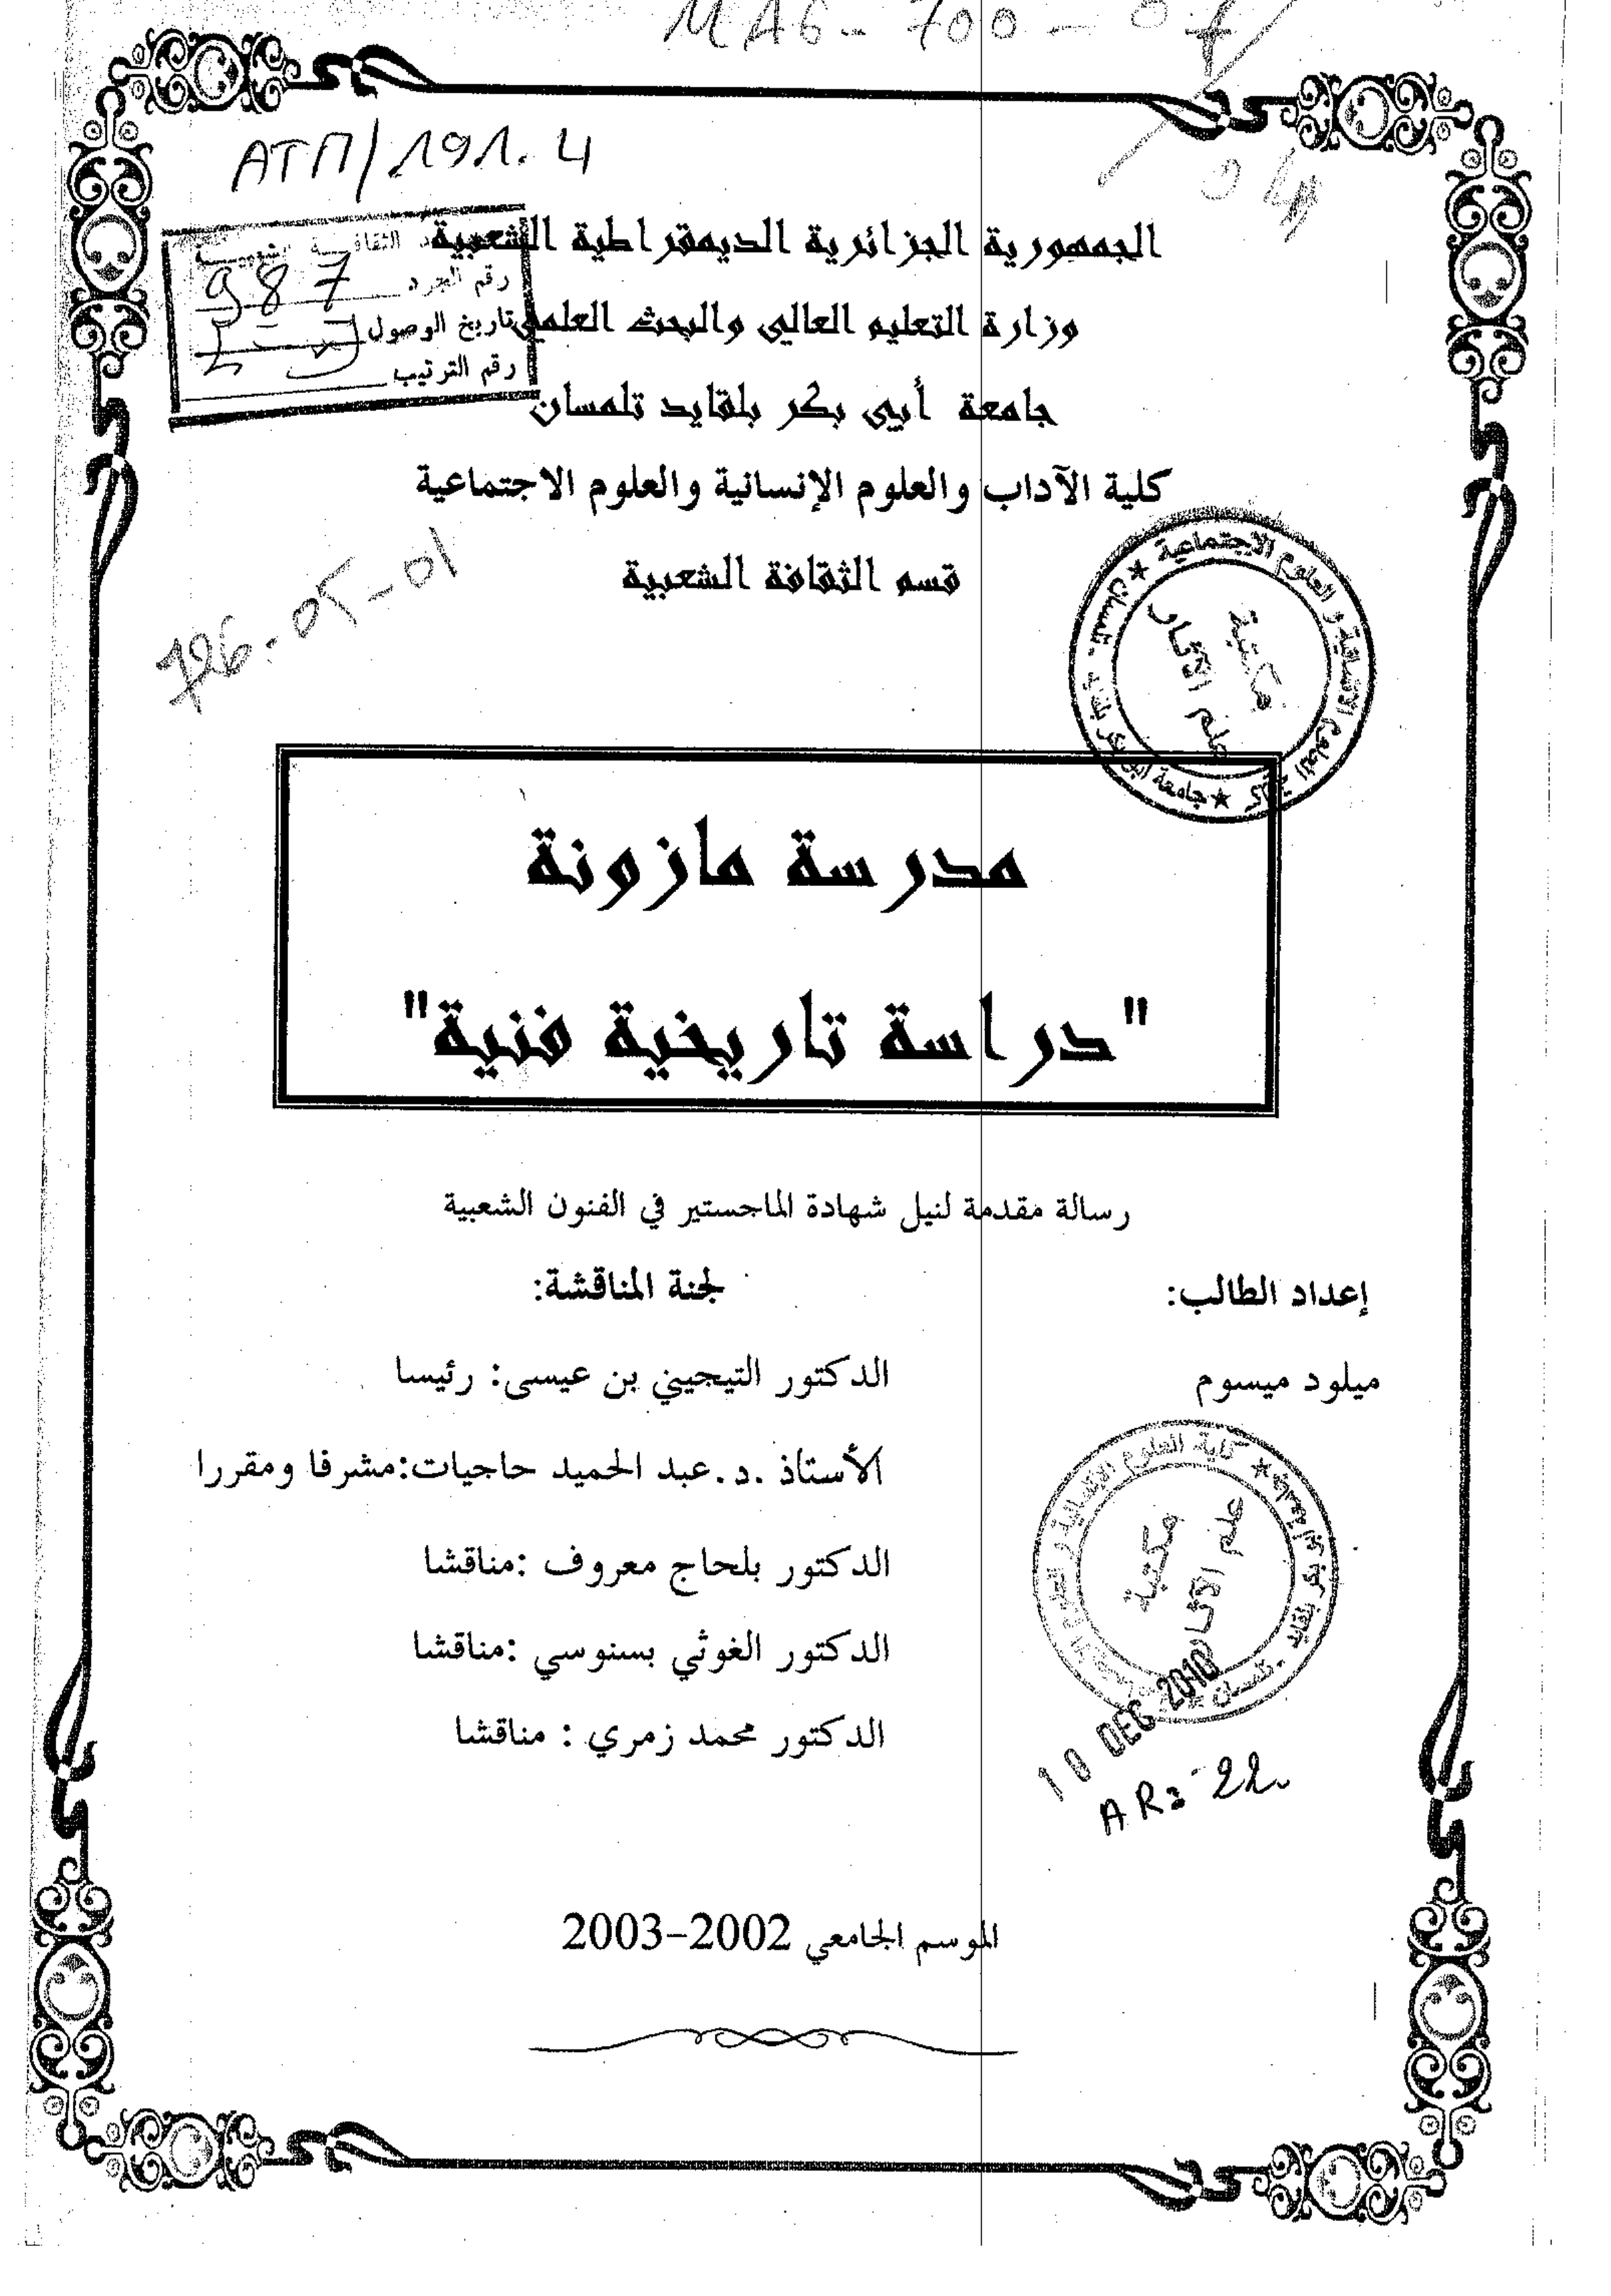 MAG-700-07/
04
ATM/191.4
الجمهورية الجزائرية الديمقراطية الشعبية
الثقافة الشعبية
رقم الجرد 987
وزارة التعليم العالي والبحث العلمي
تاريخ الوصول
رقم الترتيب
جامعة أبي بكر بلقايد تلمسان
كلية الآداب والعلوم الإنسانية والعلوم الاجتماعية
قسم الثقافة الشعبية
726-05-01
مكتبة
علم الآثار
مدرسة مازونة
"دراسة تاريخية فنية"
رسالة مقدمة لنيل شهادة الماجستير في الفنون الشعبية
إعداد الطالب:
ميلود ميسوم
لجنة المناقشة:
الدكتور التيجيني بن عيسى: رئيسا
الأستاذ .د.عبد الحميد حاجيات:مشرفا ومقررا
الدكتور بلحاج معروف :مناقشا
الدكتور الغوثي بسنوسي :مناقشا
الدكتور محمد زمري : مناقشا
مكتبة
علم الآثار
10 DEC 2010
AR: 22
الموسم الجامعي 2002-2003